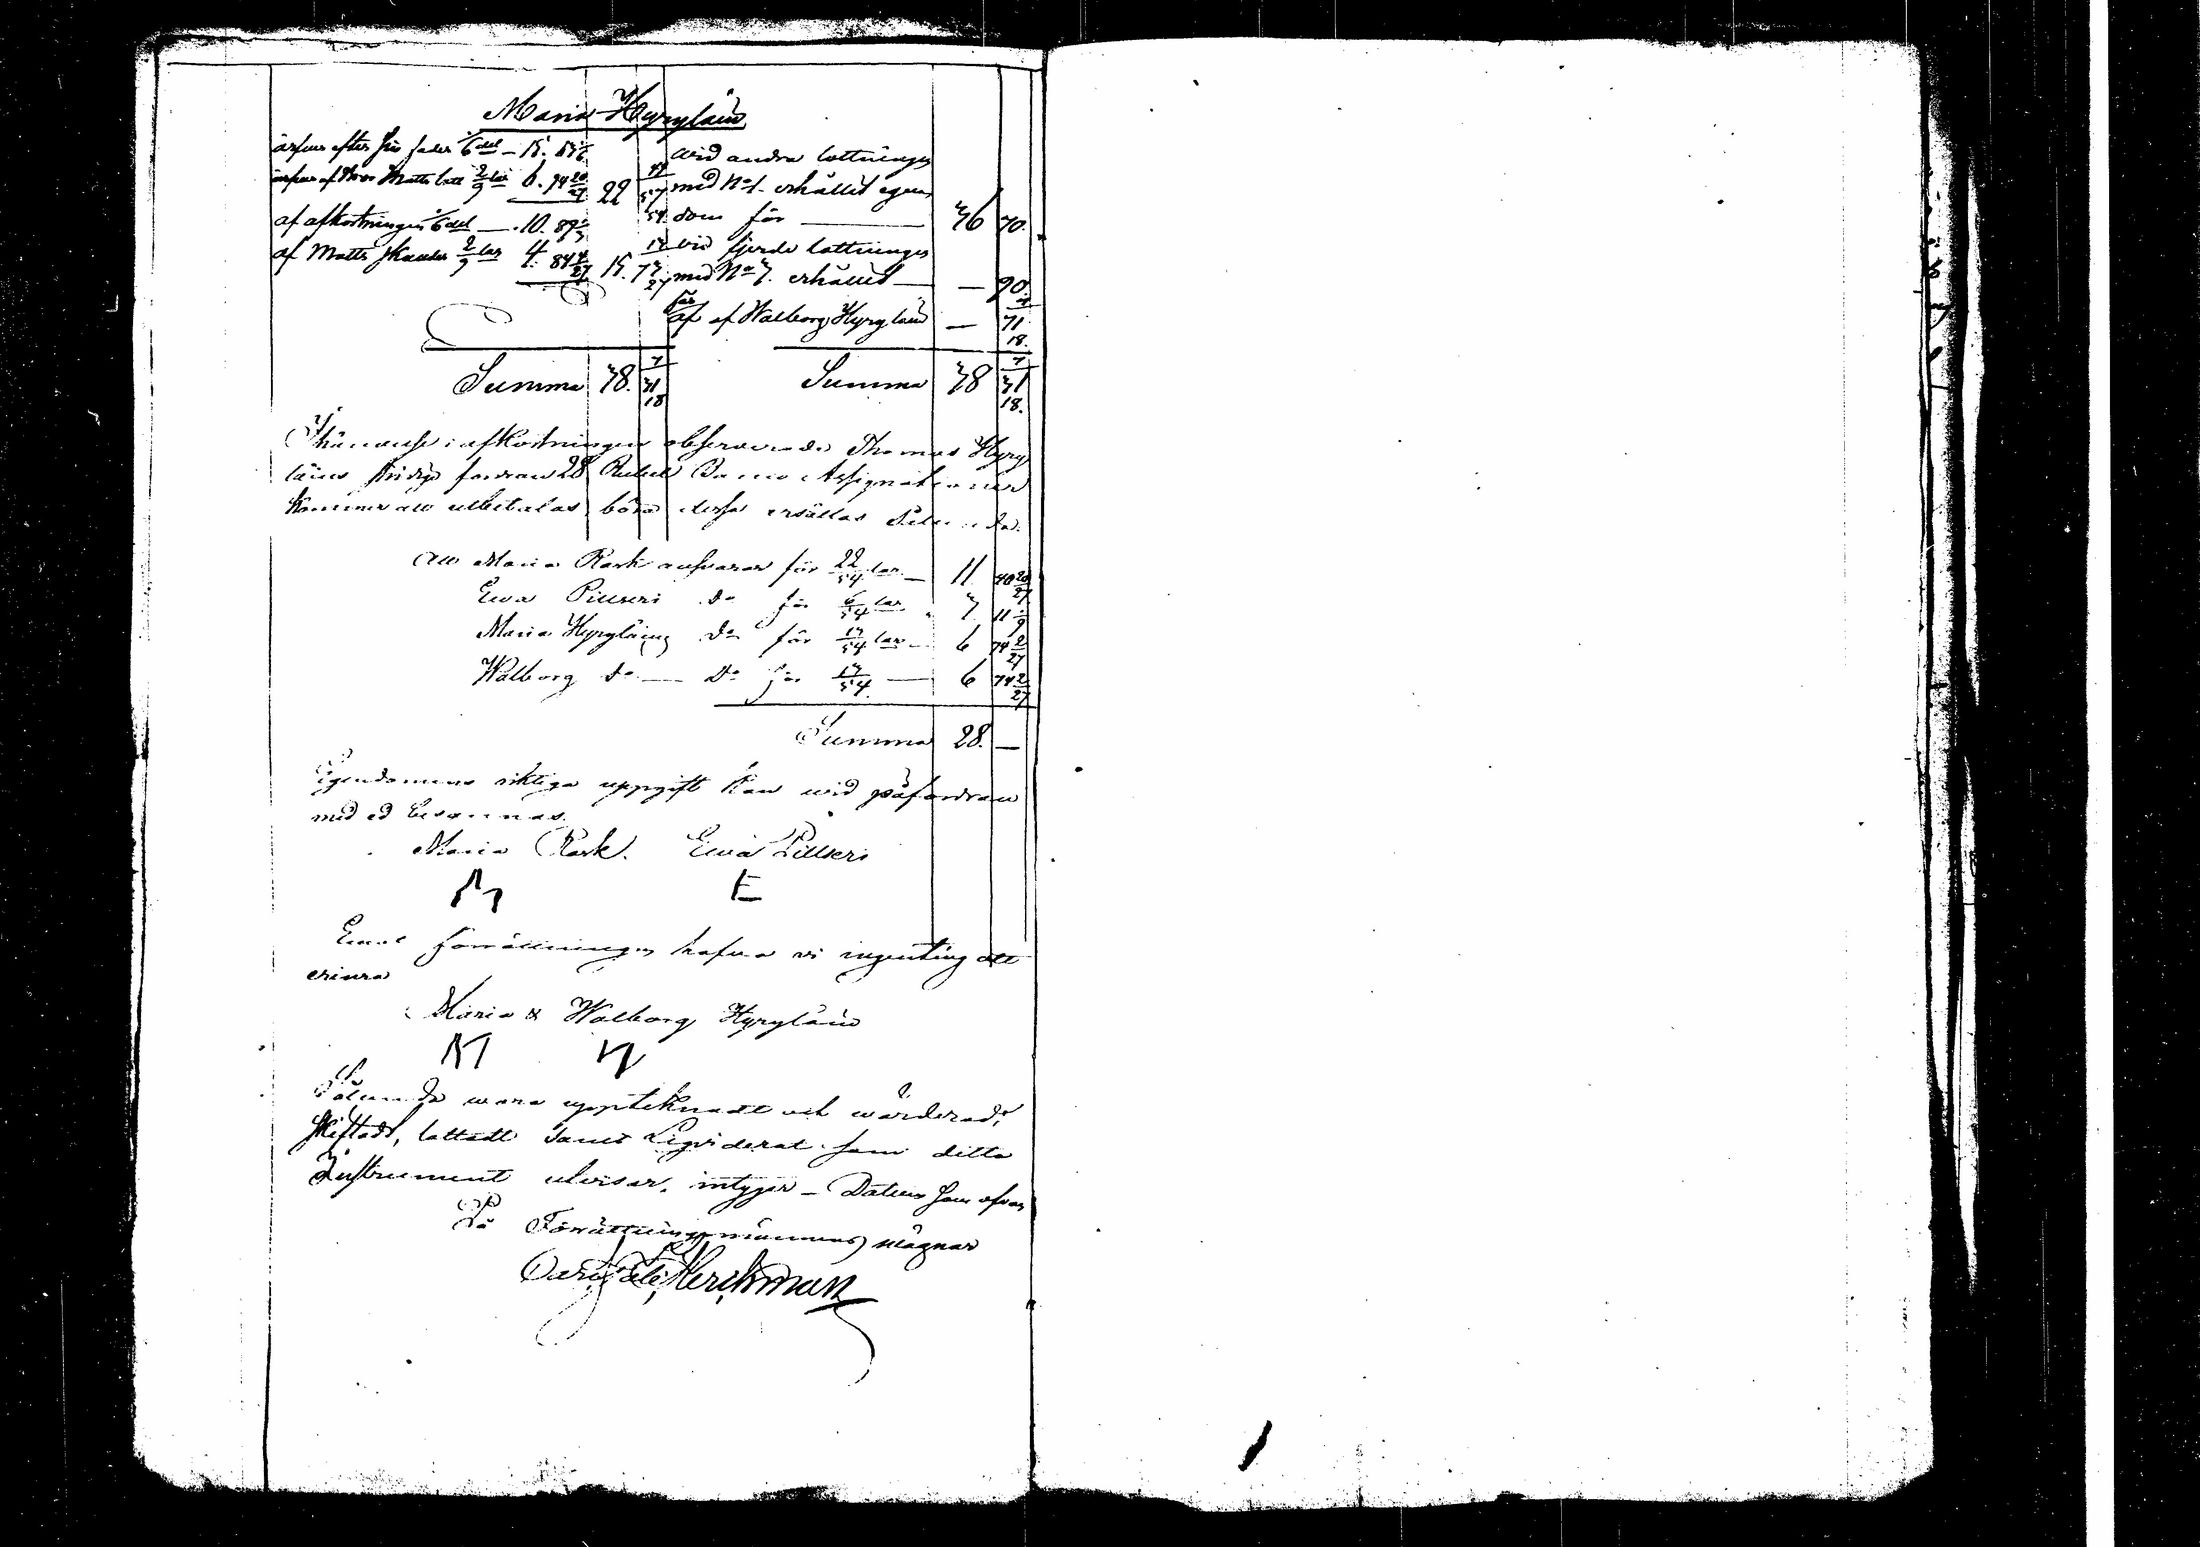 Maria Hyryläin
ärfver efter sin fader 1/6 del — 15.
ärfver af Bror Matts lott 2/9 lar 6. 94 20/27 22
af afkortningen 1/6 del — 10. 89
af Matts skulder 2/9 lar 4. 84 4/27 15. 73
wid andra lottningen
med No 1. erhållit egen
dom för — 36 70.
vid fjerde lottningen
med No 3. erhållit — — 90.
får af Walborg Hyryläin — 71
Summa 38. Summa 38
i afkortningen observerade Thomas Hyry
läins fordran 28 Rubel Banco Assignationer
kommer att utbetalas, böra dessa ersättas sålunda.
att Maria Rask ansvarar för 22/54 lar — 11 40 20/27
Ewa Pillseri do för 6/54 lar 3 11 1/9
Maria Hyryläin do för 13/54 lar — 6 74 2/27
Walborg do — do för 13/54 — 6 74 2/27
Summa 28. —
Egendomens riktiga uppgift kan wid påfordran
med ed besannas.
Maria Rask. Ewa Pillseri
M E
förrättningen hafva vi ingenting att
erinra
Maria & Walborg Hyryläin
M W
Sålunda wara upptecknadt och wärderadt,
skiftadt, lottadt samt Liqviderat som detta
Instrument utvisar, intygar — Datum som ofvan
På Förrättningsmännens wägnar